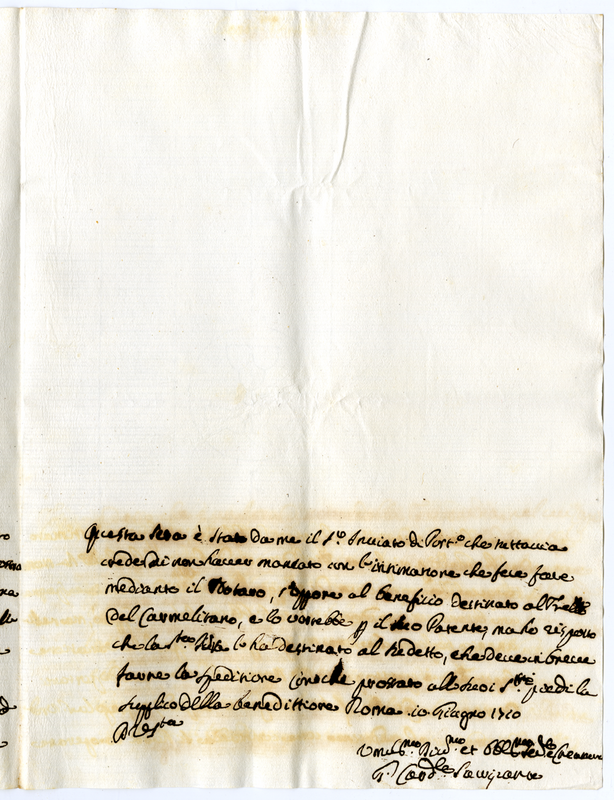 Questa sera è stato da me il S.r Inviato di Port.o che tuttavia
crede di non haver mancato con l'intimatione che fece fare
mediante il Notaro, sopra al beneficio destinato al
del Carmelitano, e lo vorrebbe p il suo Parente, ma ho risposto
che la lo ha destinato al sudetto, e che deve in breve
farne la speditione prostrato alli suoi S.mi piedi la
supplico della beneditione Roma 10 Giugno 1710
D V S.ta
Umil.mo et Obl.mo Creatura
Card.le